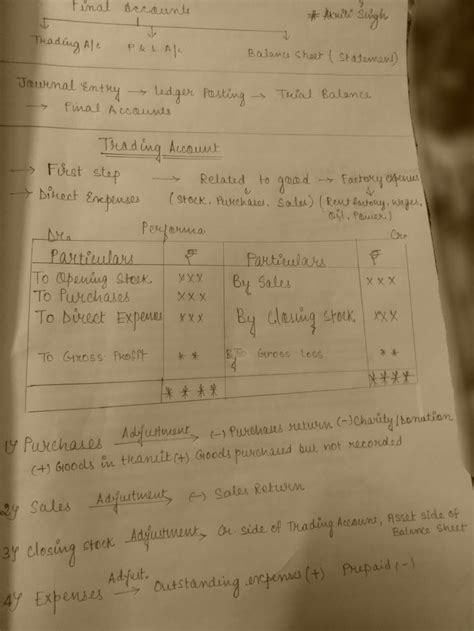 Final Accounts
* Akriti Singh
Trading A/c P & L A/c Balance Sheet (Statement)
Journal Entry → Ledger Posting → Trial Balance
→ Final Accounts
Trading Account
→ First step → Related to good → Factory expenses
→ Direct Expenses (Stock, Purchases, Sales) (Rent factory, wages,
Oil, Power)
Dr. Performa Cr.
Particulars ₹ Particulars ₹
To Opening Stock x x x By Sales x x x
To Purchases x x x
To Direct Expenses x x x By Closing Stock x x x
To Gross Profit * * By Gross loss * *
* * * * * * * *
1) Purchases Adjustment → (-) Purchases return (-) Charity/Donation
(+) Goods in transit (+) Goods purchased but not recorded
2) Sales Adjustment → (-) Sales Return
3) Closing stock Adjustment → Cr. side of Trading Account, Asset side of
Balance Sheet
4) Expenses Adjust. → Outstanding expenses (+) Prepaid (-)